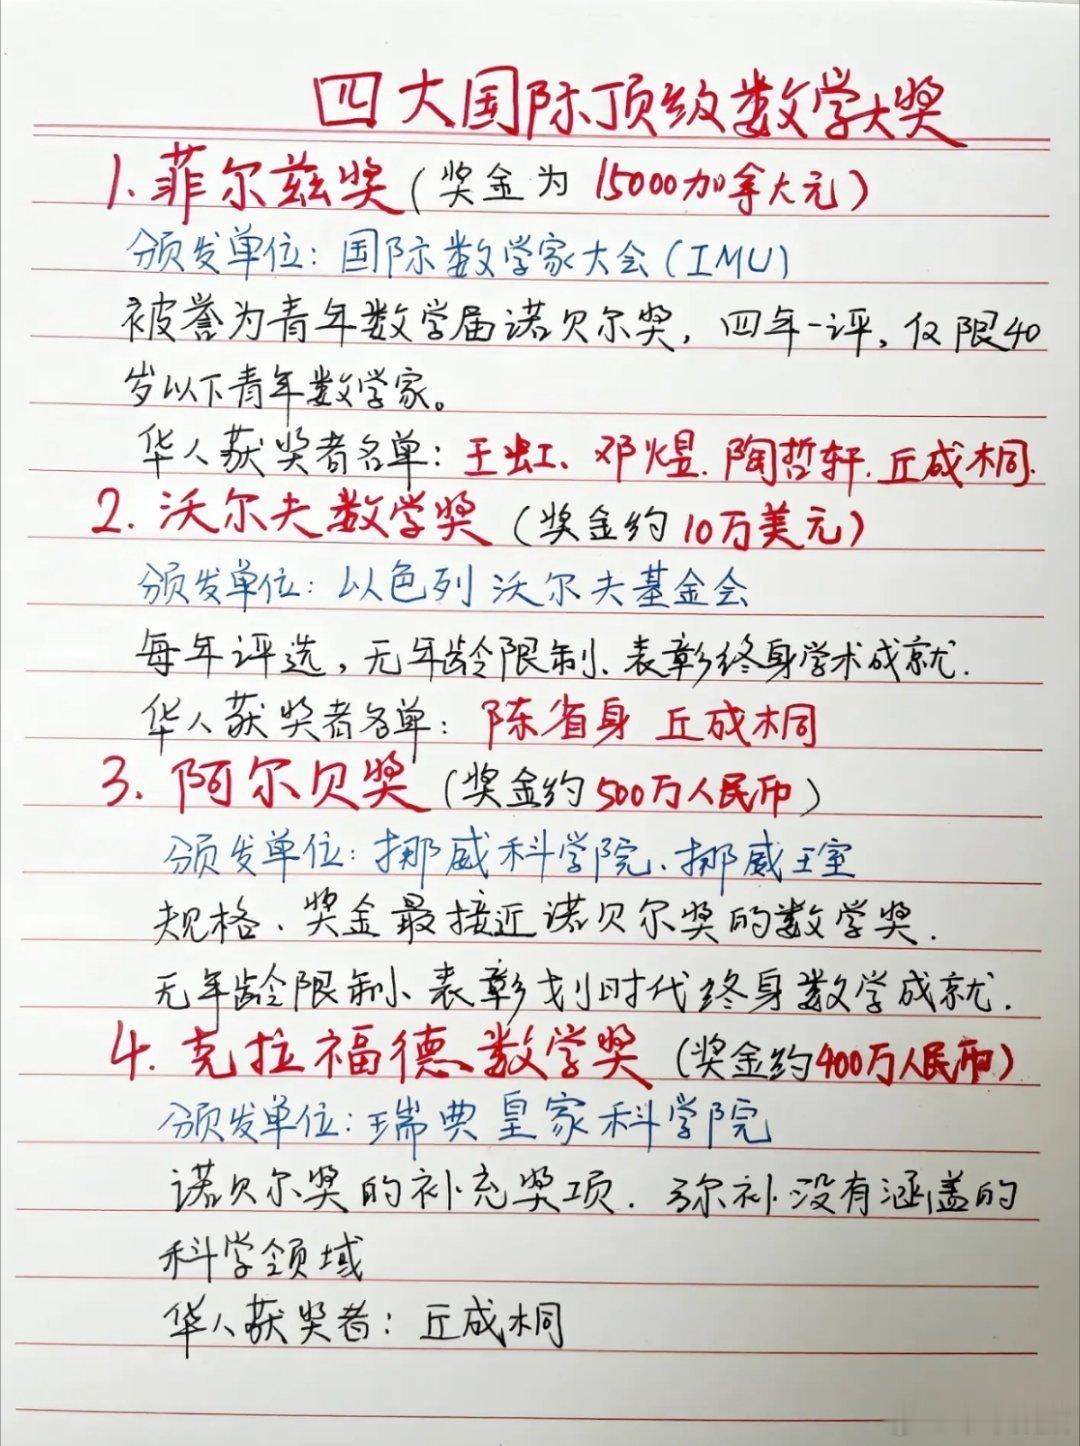 四大国际顶级数学大奖
1.菲尔兹奖(奖金为15000加拿大元)
颁发单位:国际数学家大会(IMU)
被誉为青年数学届诺贝尔奖,四年一评,仅限40
岁以下青年数学家。
华人获奖者名单:王虹、邓煜.陶哲轩.丘成桐.
2.沃尔夫数学奖(奖金约10万美元)
颁发单位:以色列沃尔夫基金会
每年评选,无年龄限制、表彰终身学术成就.
华人获奖者名单:陈省身 丘成桐
3.阿尔贝奖(奖金约500万人民币)
颁发单位:挪威科学院、挪威王室
规格、奖金最接近诺贝尔奖的数学奖.
无年龄限制、表彰划时代终身数学成就.
4.克拉福德数学奖(奖金约400万人民币)
颁发单位:瑞典皇家科学院
诺贝尔奖的补充奖项.弥补没有涵盖的
科学领域
华人获奖者:丘成桐